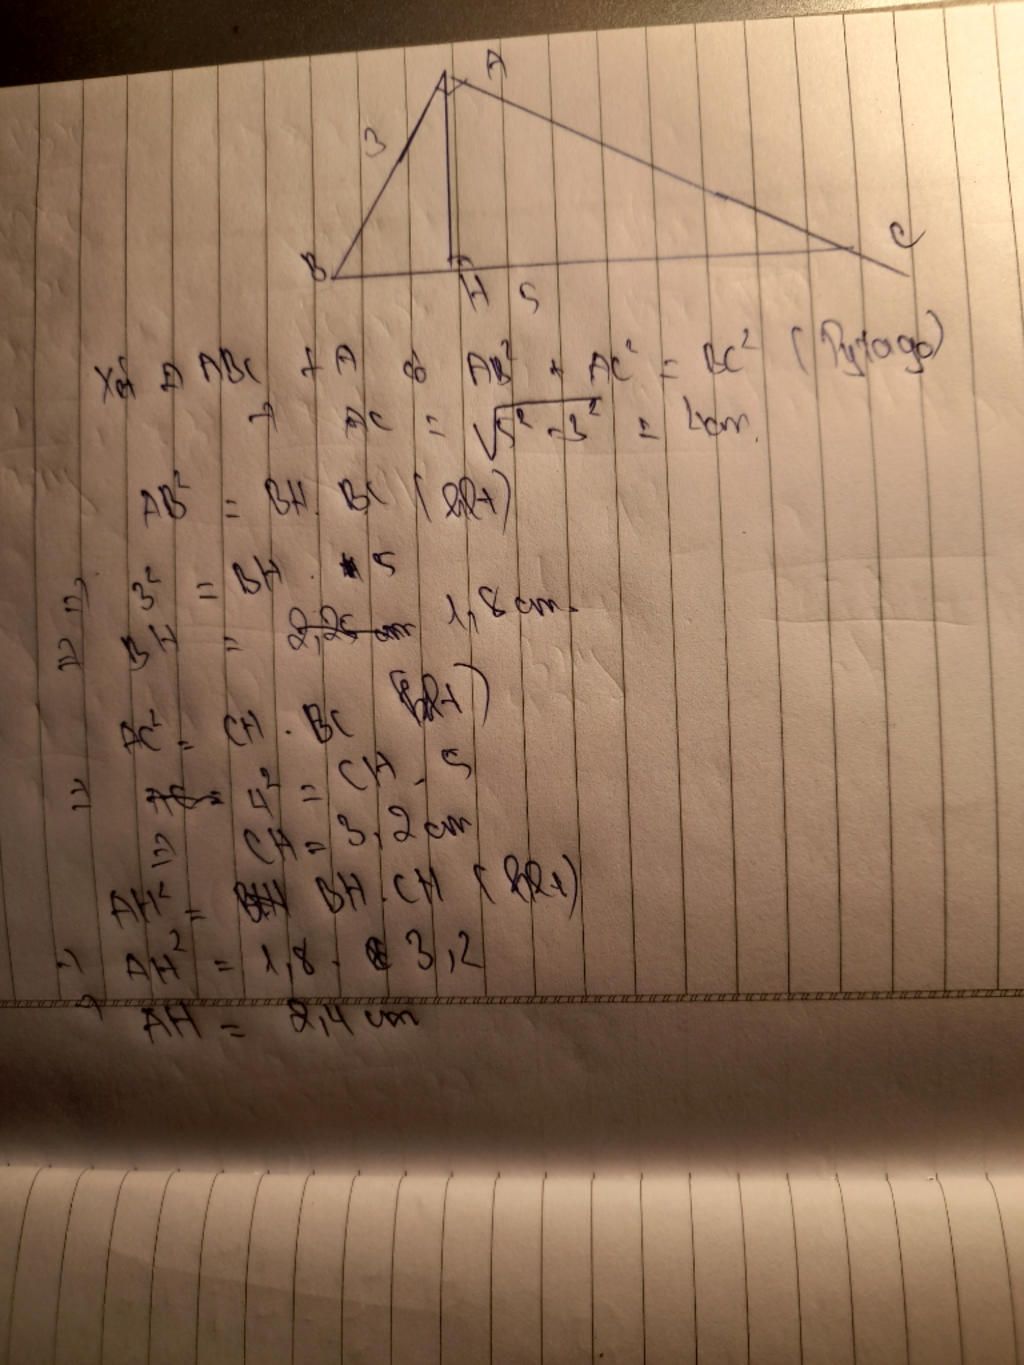 A
3
B
C
H 5
Xét Δ ABC + A có AB² + AC² = BC² (Pytago)
→ AC = √5² - 3² = 4cm.
AB² = BH . BC
=> 3² = BH . 5
=> BH = 2,25 cm 1,8 cm.
AC² = CH . BC
=> 4² = CH . 5
=> CH = 3,2 cm
AH² = BH . CH
=> AH² = 1,8 . 3,2
=> AH = 2,4 cm